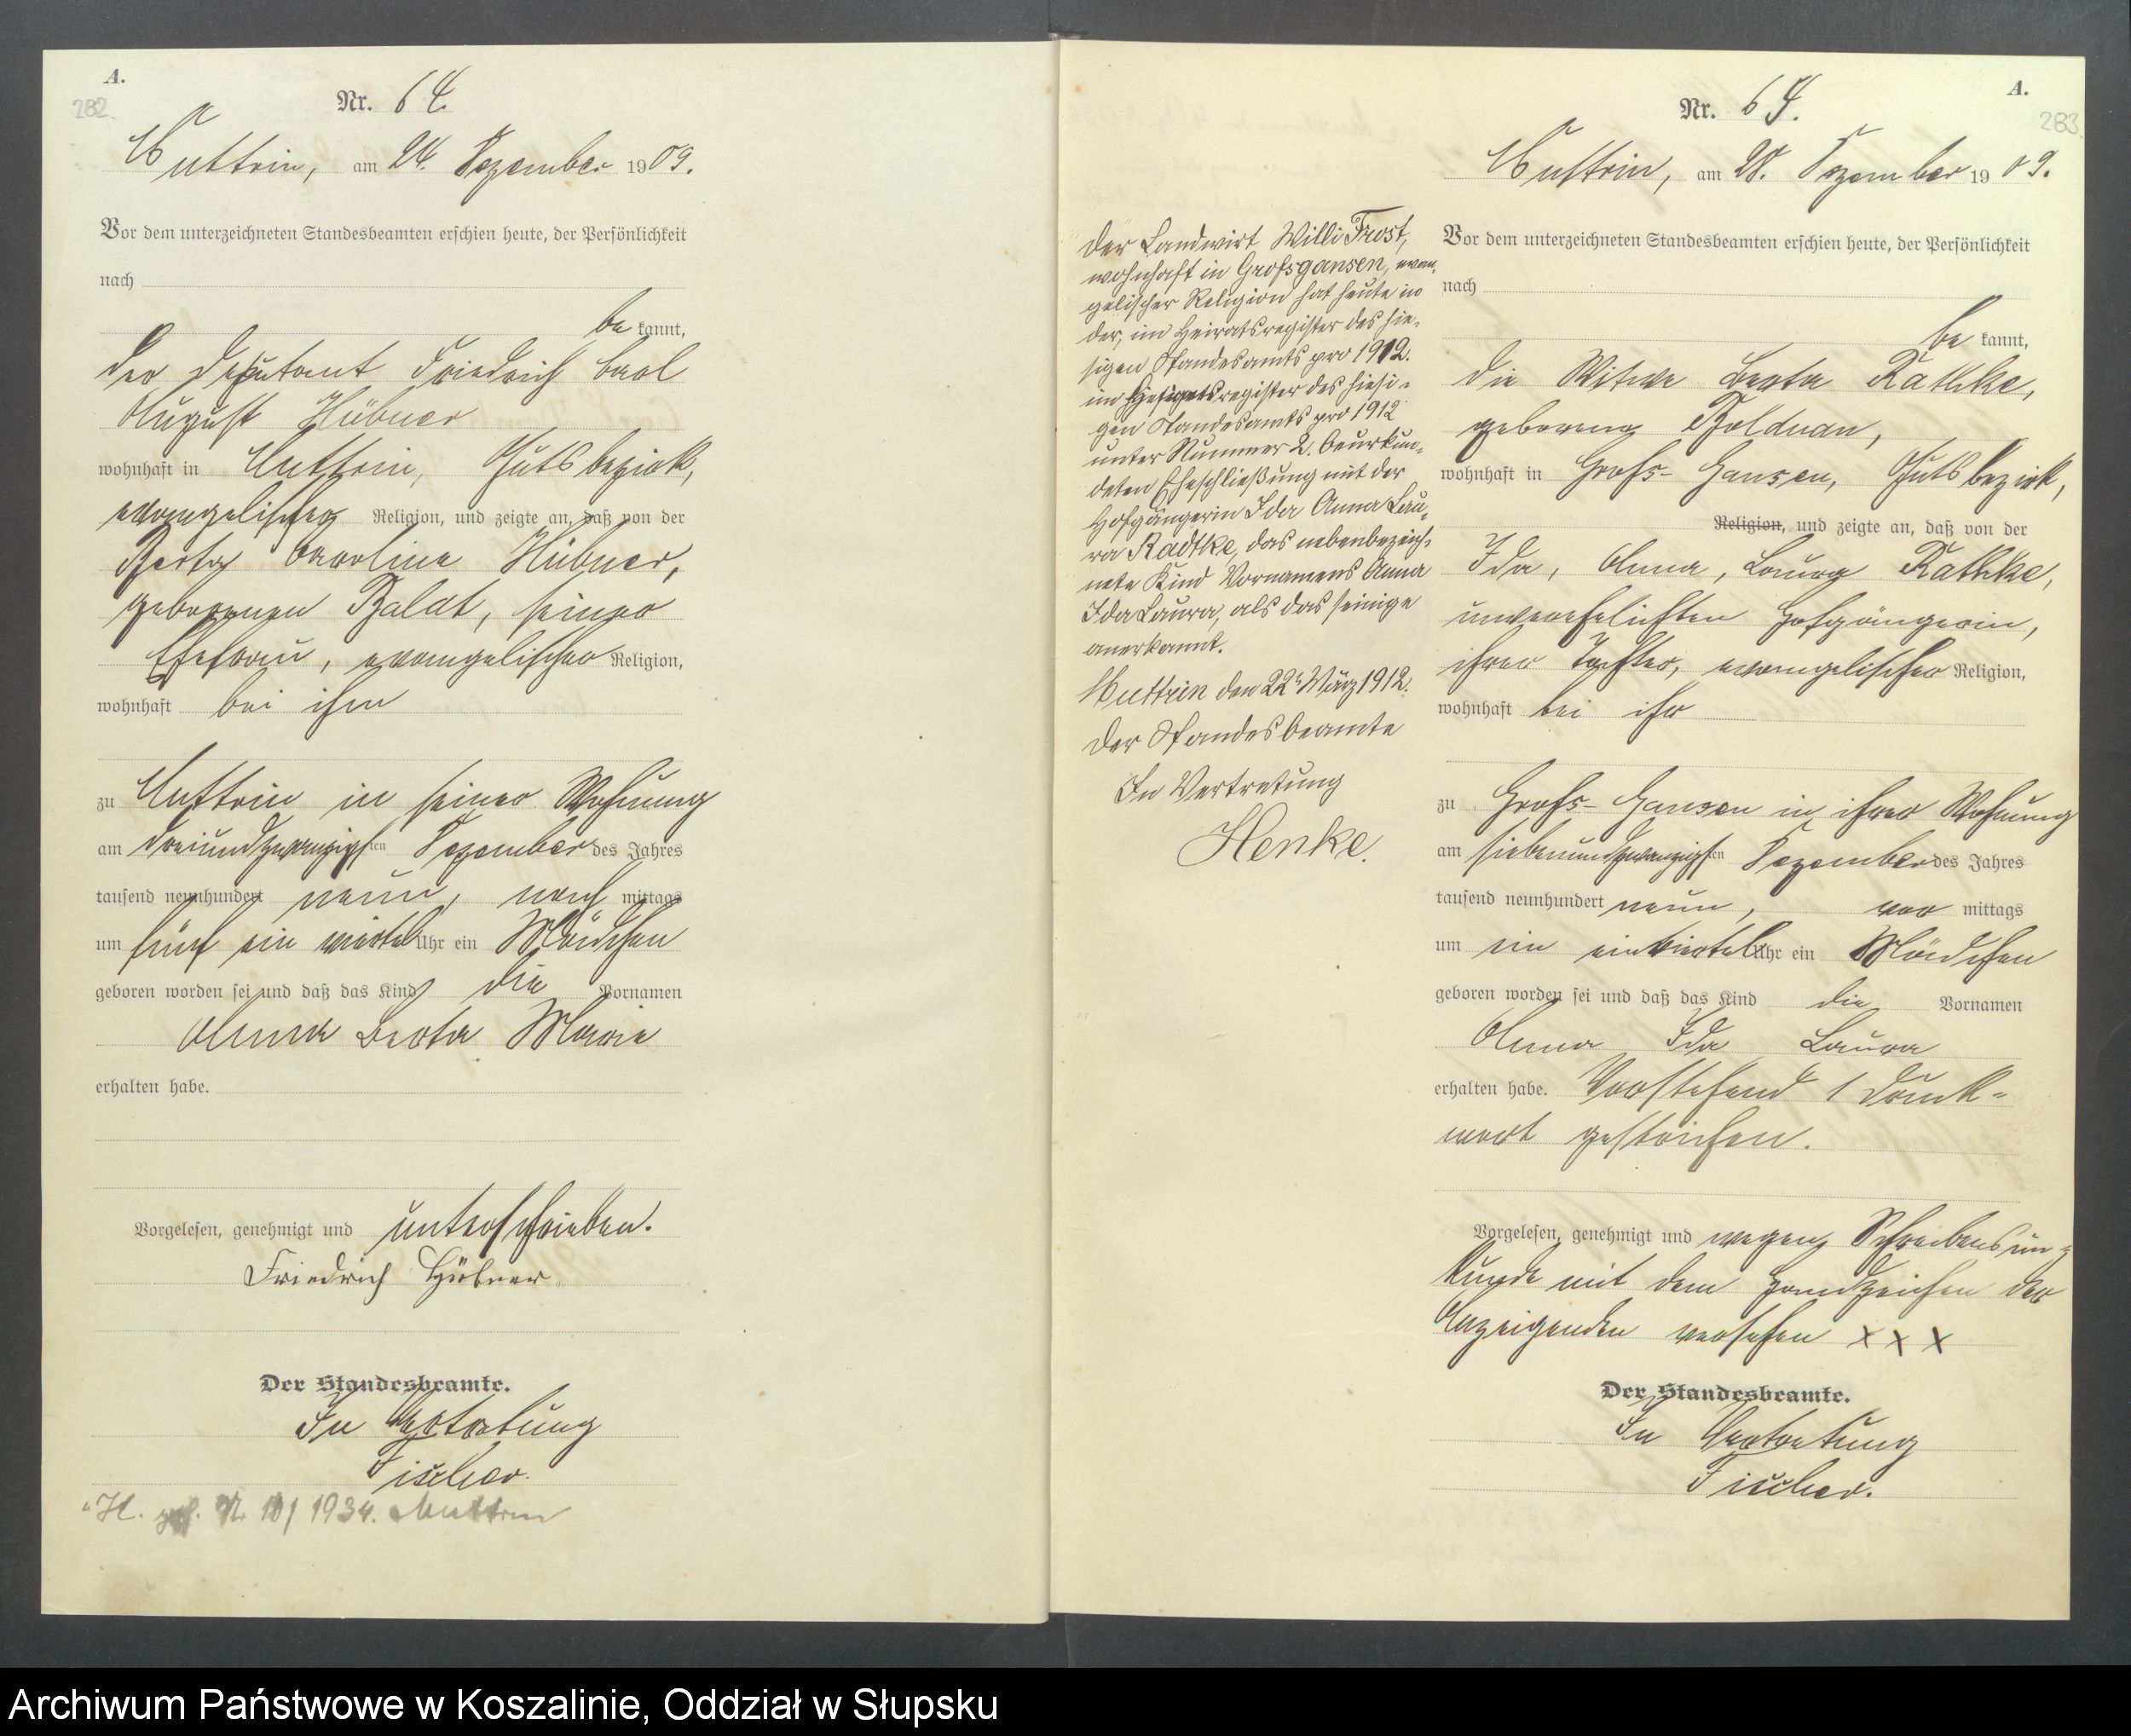 A.
282.
Nr. 64.
Muttrin, am 24. Dezember 1909.
Vor dem unterzeichneten Standesbeamten erschien heute, der Persönlichkeit
nach
be kannt,
der Deputant Friedrich Carl
August Hübner
wohnhaft in Muttrin, Gutsbezirk,
evangelischer Religion, und zeigte an, daß von der
Berta Caroline Hübner,
geborenen Balat, seiner
Ehefrau, evangelischer Religion,
wohnhaft bei ihm
zu Muttrin in seiner Wohnung
am dreiundzwanzigsten Dezember des Jahres
tausend neunhundert neun, nach mittags
um fünf ein viertel Uhr ein Mädchen
geboren worden sei und daß das Kind die Vornamen
Anna Berta Marie
erhalten habe.
Vorgelesen, genehmigt und unterschrieben.
Friedrich Hübner
Der Standesbeamte.
In Vertretung
Fischer.
H. Nr. 10/1934. Muttrin
A.
283.
Nr. 65.
Muttrin, am 28. Dezember 1909.
Vor dem unterzeichneten Standesbeamten erschien heute, der Persönlichkeit
nach
be kannt,
die Witwe Berta Rathke,
geborene Bolduan,
wohnhaft in Groß-Gansen, Gutsbezirk,
Religion, und zeigte an, daß von der
Ida, Anna, Laura Rathke,
unverehelichten Hofgängerin,
ihrer Tochter, evangelischer Religion,
wohnhaft bei ihr
zu Groß-Gansen in ihrer Wohnung
am siebenundzwanzigsten Dezember des Jahres
tausend neunhundert neun, vor mittags
um ein einviertel Uhr ein Mädchen
geboren worden sei und daß das Kind die Vornamen
Anna Ida Laura
erhalten habe. Vorstehend 1 Druck-
wort gestrichen.
Vorgelesen, genehmigt und wegen Schreibensun-
kunde mit dem Handzeichen der
Anzeigenden versehen x x x
Der Standesbeamte.
In Vertretung
Fischer.
Der Landwirt Willi Frost,
wohnhaft in Großgansen, evan-
gelischer Religion hat heute in
der, im Heiratsregister des hie-
sigen Standesamts pro 1912.
im register des hiesi-
gen Standesamts pro 1912
unter Nummer 2. beurkun-
deten Eheschließung mit der
Hofgängerin Ida Anna Lau-
ra Radtke, das nebenbezeich-
nete Kind Vornamens Anna
Ida Laura, als das seinige
anerkannt.
Muttrin den 22t März 1912.
Der Standesbeamte
In Vertretung
Henke.
Archiwum Państwowe w Koszalinie, Oddział w Słupsku